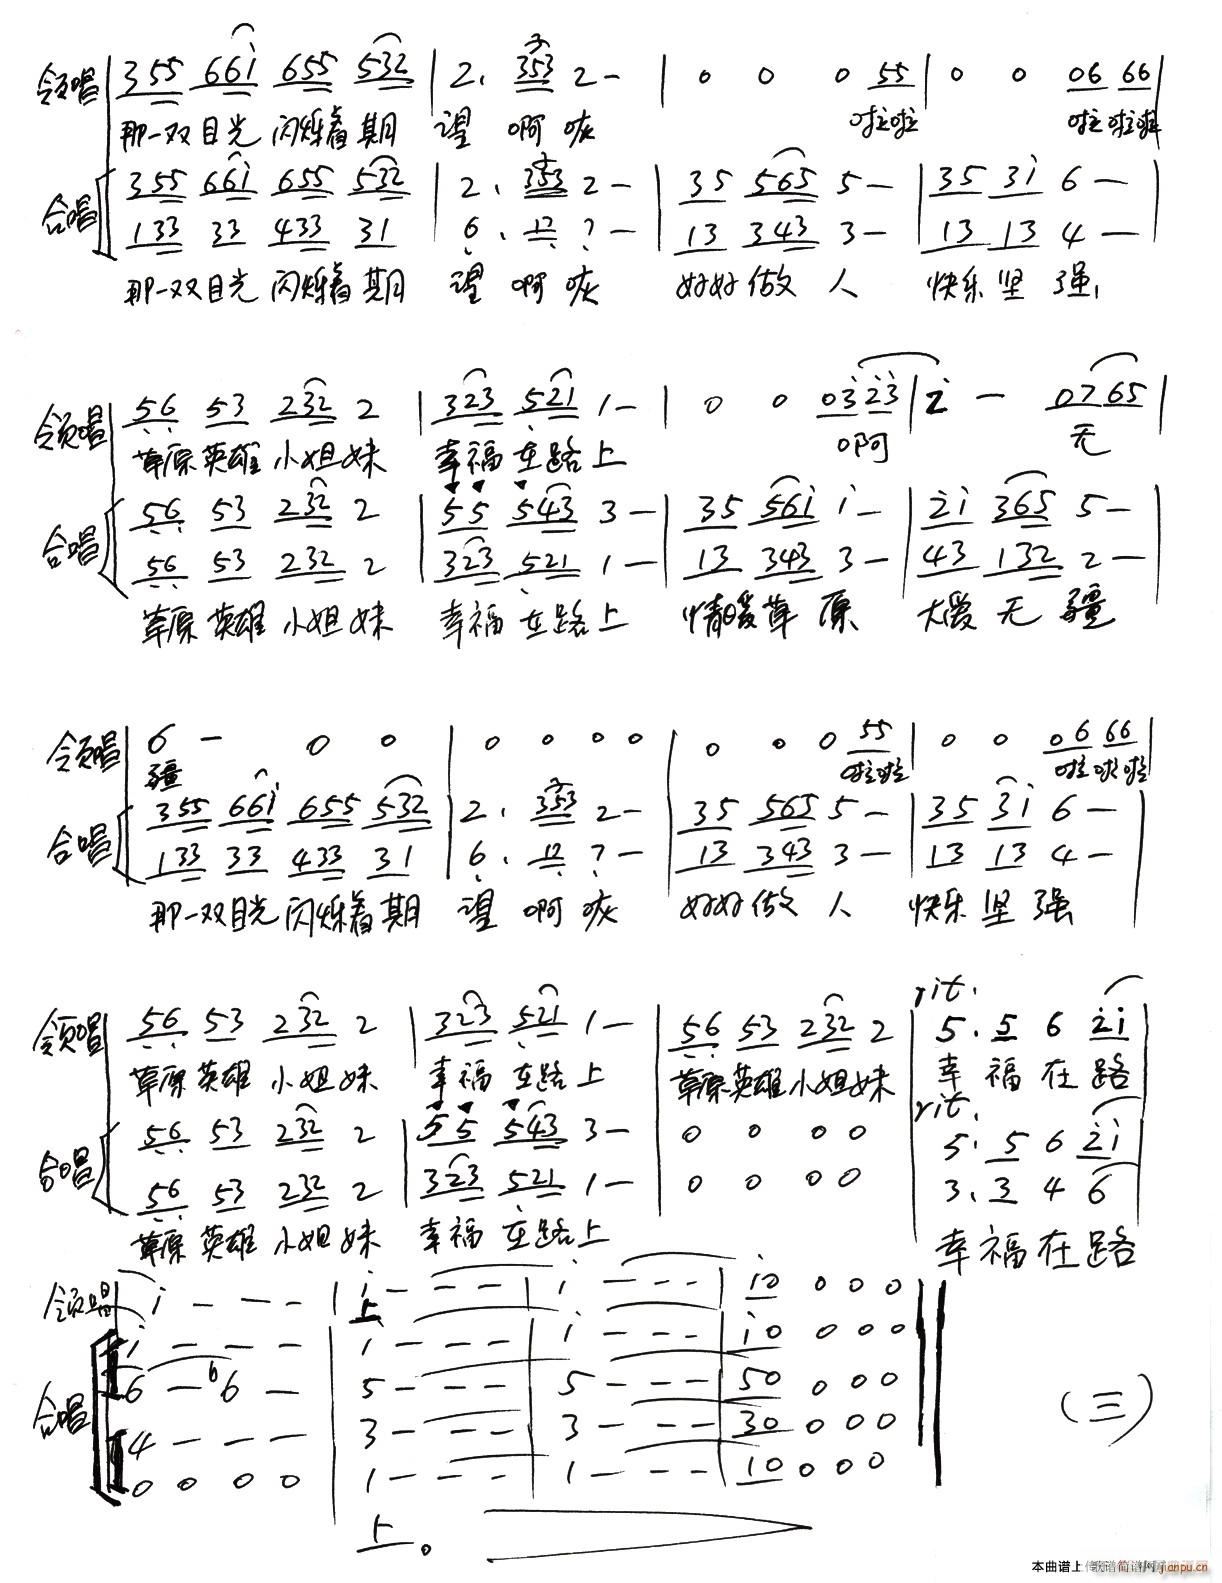 领唱 355 661 655 532 | 2. 353 2 - | 0 0 0 55 | 0 0 06 66 |
那一双目光 闪烁着期 望 啊咴 啦啦 啦啦啦
合唱 355 661 655 532 | 2. 353 2 - | 35 565 5 - | 35 31 6 - |
133 33 433 31 | 6. 12 7 - | 13 343 3 - | 13 13 4 - |
那一双目光 闪烁着期 望 啊咴 好好做人 快乐坚强,
领唱 56 53 232 2 | 323 521 1 - | 0 0 0323 | 2 - 0765 |
草原英雄小姐妹 幸福在路上 啊 无
合唱 56 53 232 2 | 55 543 3 - | 35 561 1 - | 21 365 5 - |
56 53 232 2 | 323 521 1 - | 13 343 3 - | 43 132 2 - |
草原英雄小姐妹 幸福在路上 情暖草原 大爱无疆
领唱 6 - 0 0 | 0 0 0 0 | 0 0 0 55 | 0 0 06 66 |
疆 啦啦 啦啦啦
合唱 355 661 655 532 | 2. 353 2 - | 35 565 5 - | 35 31 6 - |
133 33 433 31 | 6. 12 7 - | 13 343 3 - | 13 13 4 - |
那一双目光 闪烁着期 望 啊咴 好好做人 快乐坚强
rit.
领唱 56 53 232 2 | 323 521 1 - | 56 53 232 2 | 5. 5 6 21 |
草原英雄小姐妹 幸福在路上 草原英雄小姐妹 幸福在路
rit.
合唱 56 53 232 2 | 55 543 3 - | 0 0 0 0 | 5. 5 6 21 |
56 53 232 2 | 323 521 1 - | 0 0 0 0 | 3. 3 4 6 |
草原英雄小姐妹 幸福在路上 幸福在路
领唱 1 - - - | 1 - - - | 1 - - - | 10 0 0 0
上
合唱 1 - - - | 1 - - - | 1 - - - | 10 0 0 0
6 - 6 6 - | 5 - - - | 5 - - - | 50 0 0 0
4 - - - | 3 - - - | 3 - - - | 30 0 0 0
0 0 0 0 | 1 - - - | 1 - - - | 10 0 0 0
(三)
上。
本曲谱上传 简谱网 jianpu.cn